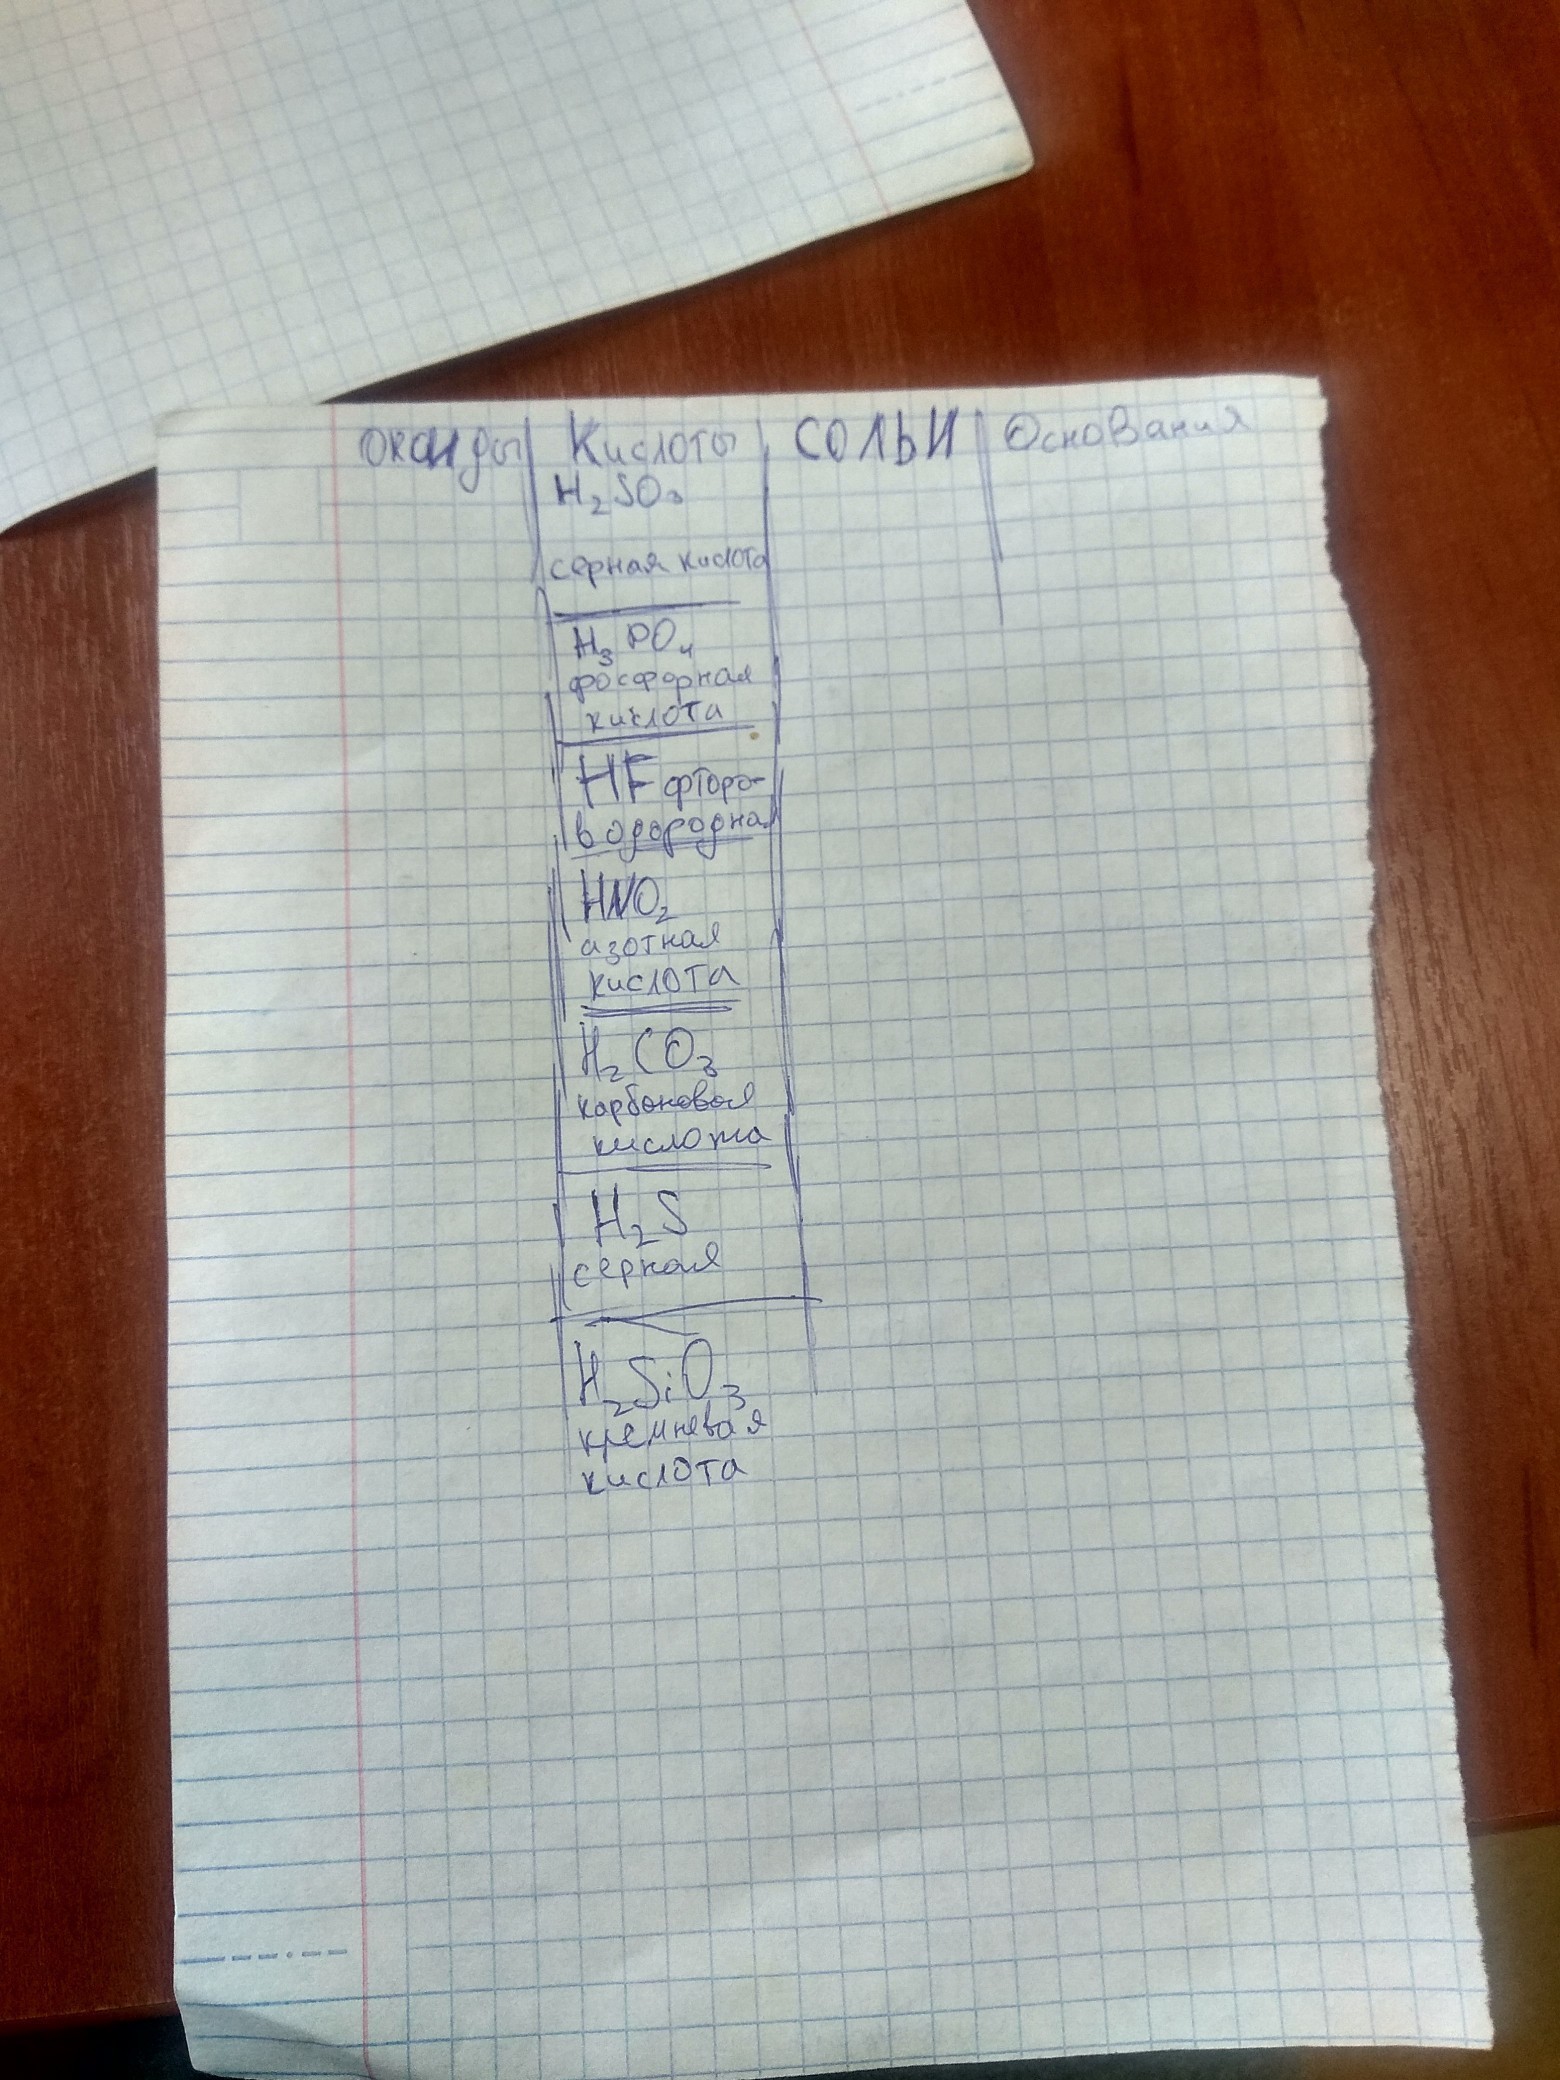 оксиды Кислоты СОЛЬИ Основания
H₂SO₃
серная кислота
H₃PO₄
фосфорная
кислота
HF фторо-
водородная
HNO₂
азотная
кислота
H₂CO₃
карбоновая
кислота
H₂S
серная
H₂SiO₃
кремневая
кислота